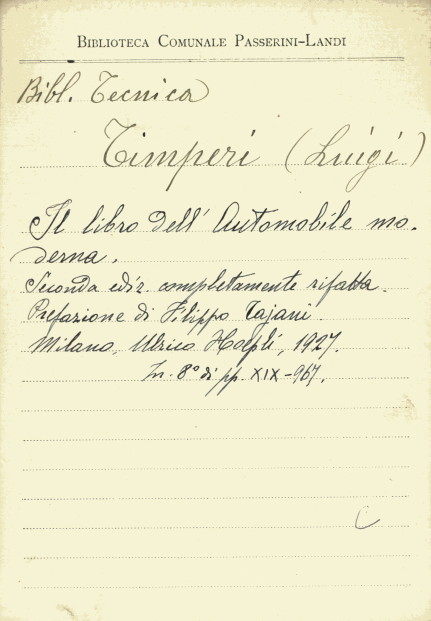 BIBLIOTECA COMUNALE PASSERINI-LANDI
Bibl. Tecnica
Timperi (Luigi)
Il libro dell' Automobile mo-
derna.
Seconda ediz. completamente rifatta.
Prefazione di Filippo Tajani.
Milano, Ulrico Hoepli, 1927.
In-8° di pp. XIX-967.